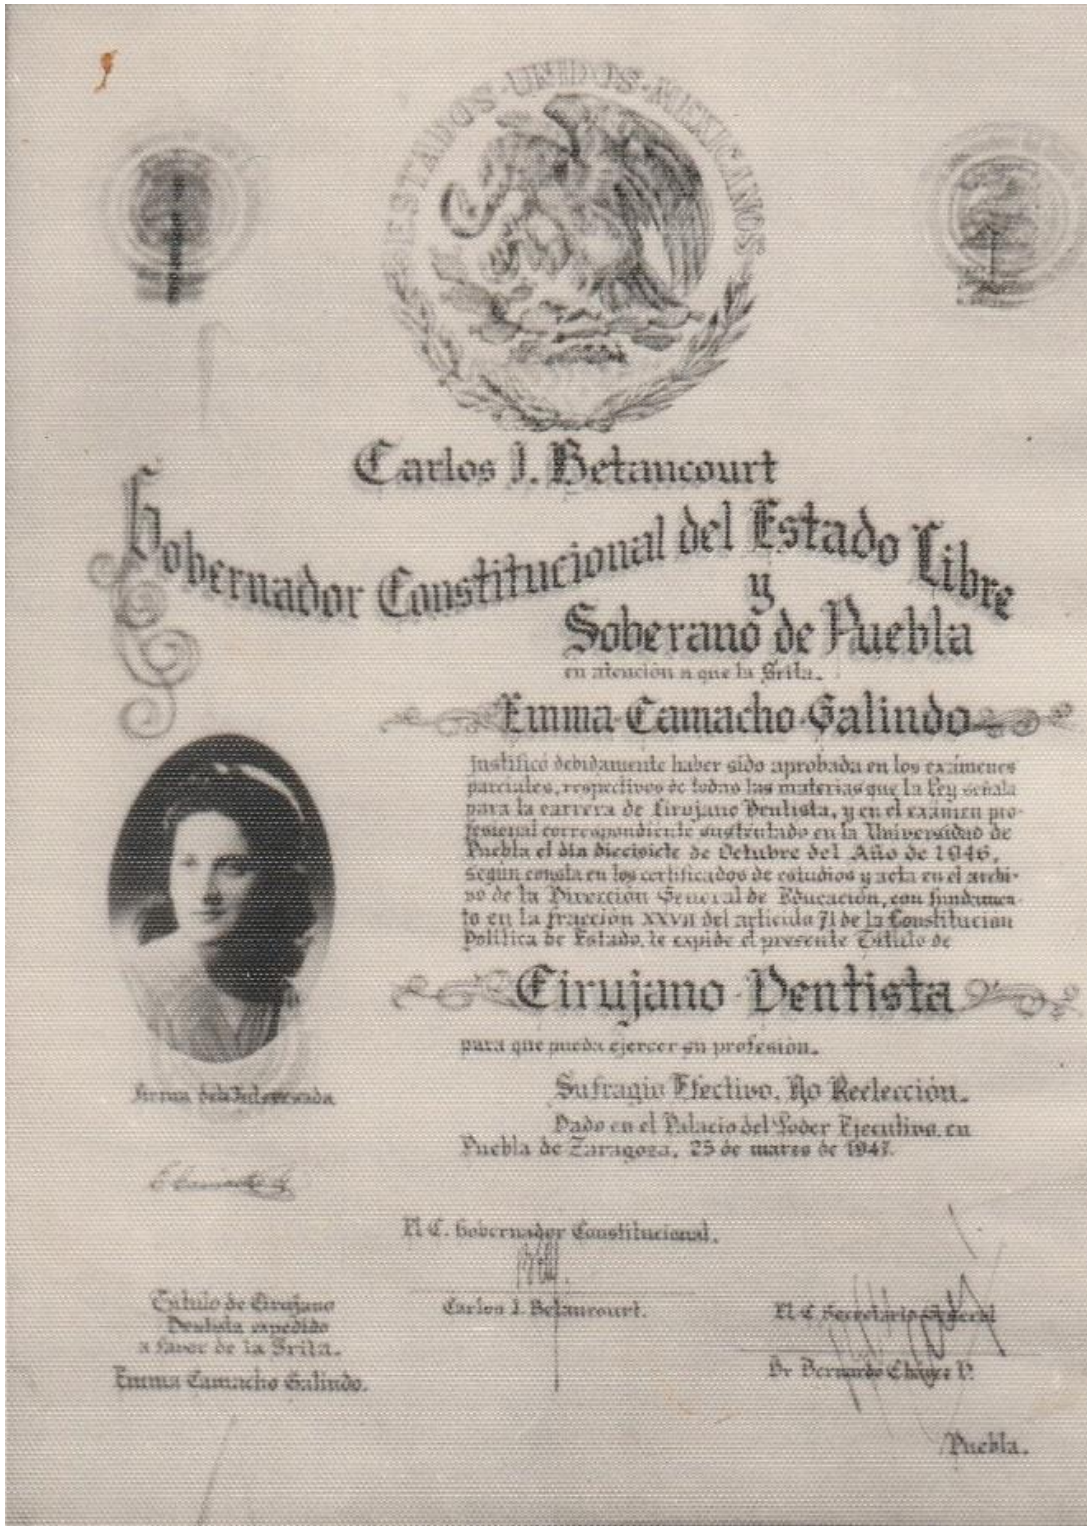 ESTADOS·UNIDOS·MEXICANOS
Carlos I. Betancourt
Gobernador Constitucional del Estado Libre
y
Soberano de Puebla
en atención a que la Srita.
Emma Camacho Galindo
justificó debidamente haber sido aprobada en los exámenes
parciales, respectivos de todas las materias que la Ley señala
para la carrera de Cirujano Dentista, y en el exámen pro-
fesional correspondiente sustentado en la Universidad de
Puebla el día diecisiete de Octubre del Año de 1946,
según consta en los certificados de estudios y acta en el archi-
vo de la Dirección General de Educación, con fundamen-
to en la fracción XXVII del artículo 71 de la Constitución
Política de Estado, le expide el presente Título de
Cirujano Dentista
para que pueda ejercer su profesión.
Sufragio Efectivo, No Reelección.
Dado en el Palacio del Poder Ejecutivo, en
Puebla de Zaragoza, 25 de marzo de 1947.
Firma de la Interesada
E Camacho G
El C. Gobernador Constitucional.
Carlos I. Betancourt.
El C. Secretario General
Dr Bernardo Chávez V.
Título de Cirujano
Dentista expedido
a favor de la Srita.
Emma Camacho Galindo.
Puebla.